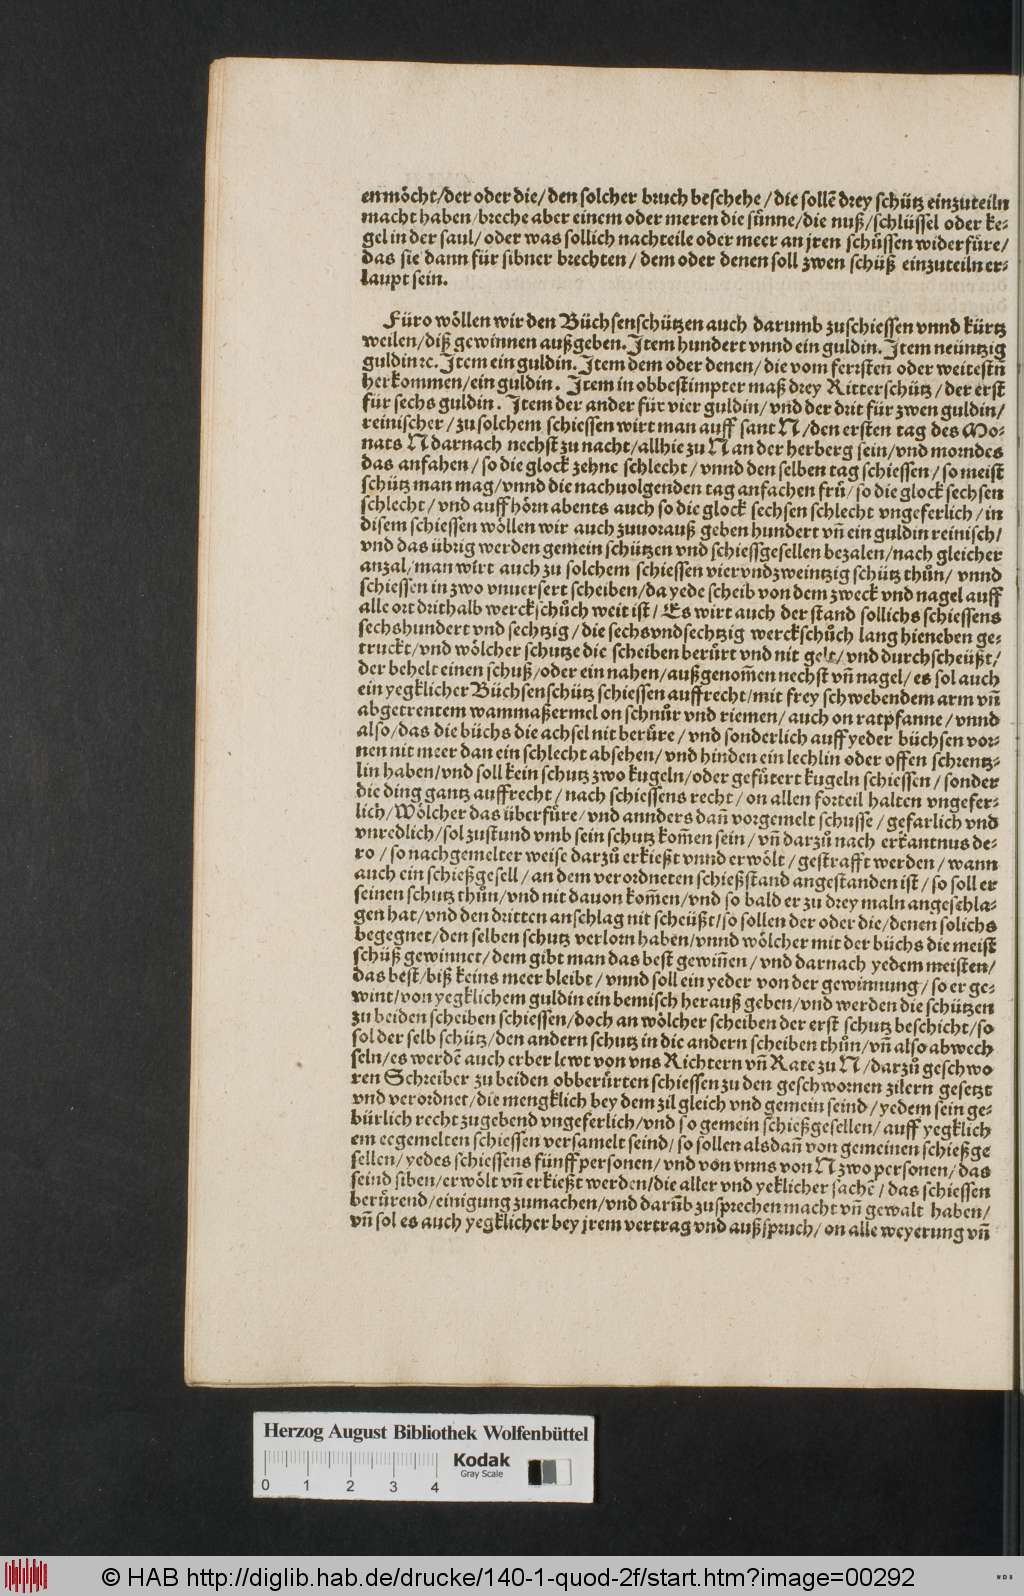 en möcht/der oder die/den solcher bruch beschehe/die sollē drey schütz einzuteiln
macht haben/breche aber einem oder meren die sünne/die nuß/schlüssel oder ke-
gel in der saul/oder was sollich nachteile oder meer an jren schüssen widerfüre/
das sie dann für sibner brechten/dem oder denen soll zwen schüß einzuteiln er-
laupt sein.
Füro wöllen wir den Büchsenschützen auch darumb zuschiessen vnnd kürtz
weilen/diß gewinnen außgeben. Item hundert vnnd ein guldin. Item neüntzig
guldin ꝛc. Item ein guldin. Item dem oder denen/die vom ferrsten oder weitestn̄
herkommen/ein guldin. Item in obbestimpter maß drey Ritterschütz/der erst
für sechs guldin. Item der ander für vier guldin/vnd der drit für zwen guldin/
reinischer/zu solchem schiessen wirt man auff sant N/den ersten tag des Mo-
nats N darnach nechst zu nacht/allhie zu N an der herberg sein/vnd morndes
das anfahen/so die glock zehne schlecht/vnnd den selben tag schiessen/so meist
schütz man mag/vnnd die nachuolgenden tag anfachen frů/so die glock sechsen
schlecht/vnd auff hörn abents auch so die glock sechsen schlecht vngeferlich/in
disem schiessen wöllen wir auch zuuorauß geben hundert vn̄ ein guldin reinisch/
vnd das übrig werden gemein schützen vnd schiessgesellen bezalen/nach gleicher
anzal/man wirt auch zu solchem schiessen viervndzweintzig schütz thůn/vnnd
schiessen in zwo vnuersert scheiben/da yede scheib von dem zweck vnd nagel auff
alle ort drithalb werckschůch weit ist/Es wirt auch der stand sollichs schiessens
sechshundert vnd sechtzig/die sechsvndsechtzig werckschůch lang hieneben ge-
truckt/vnd wölcher schutze die scheiben berůrt vnd nit gelt/vnd durchscheüßt/
der behelt einen schuß/oder ein nahen/außgenom̄en nechst vn̄ nagel/es sol auch
ein yegklicher Büchsenschütz schiessen auffrecht/mit frey schwebendem arm vn̄
abgetrentem wammaßermel on schnůr vnd riemen/auch on ratpfanne/vnnd
also/das die büchs die achsel nit berüre/vnd sonderlich auff yeder büchsen vor-
nen nit meer dan ein schlecht absehen/vnd hinden ein lechlin oder offen schrentz-
lin haben/vnd soll kein schutz zwo kugeln/oder gefůtert kugeln schiessen/sonder
die ding gantz auffrecht/nach schiessens recht/on allen forteil halten vngefer-
lich/Wölcher das überfüre/vnd annders dan̄ vorgemelt schusse/gefarlich vnd
vnredlich/sol zustund vmb sein schutz kom̄en sein/vn̄ darzů nach erkantnus de-
ro/so nachgemelter weise darzů erkießt vnnd erwölt/gestrafft werden/wann
auch ein schießgesell/an dem verordneten schießstand angestanden ist/so soll er
seinen schutz thůn/vnd nit dauon kom̄en/vnd so bald er zu drey maln angeschla-
gen hat/vnd den dritten anschlag nit scheüßt/so sollen der oder die/denen solichs
begegnet/den selben schutz verlorn haben/vnnd wölcher mit der büchs die meist
schüß gewinnet/dem gibt man das best gewin̄en/vnd darnach yedem meisten/
das best/biß keins meer bleibt/vnnd soll ein yeder von der gewinnung/so er ge-
wint/von yegklichem guldin ein bemisch herauß geben/vnd werden die schützen
zu beiden scheiben schiessen/doch an wölcher scheiben der erst schutz beschicht/so
sol der selb schütz/den andern schutz in die andern scheiben thůn/vn̄ also abwech
seln/es werdē auch erber lewt von vns Richtern vn̄ Rate zu N/darzů geschwo
ren Schreiber zu beiden obberürten schiessen zu den geschwornen zilern gesetzt
vnd verordnet/die mengklich bey dem zil gleich vnd gemein seind/yedem sein ge-
bürlich recht zugebend vngeferlich/vnd so gemein schießgesellen/auff yegklich
em eegemelten schiessen versamelt seind/so sollen alsdan̄ von gemeinen schießge
sellen/yedes schiessens fünff personen/vnd von vnns von N zwo personen/das
seind siben/erwölt vn̄ erkießt werden/die aller vnd yeklicher sachē/das schiessen
berůrend/einigung zumachen/vnd darūb zusprechen macht vn̄ gewalt haben/
vn̄ sol es auch yegklicher bey jrem vertrag vnd außspruch/on alle weyerung vn̄
Herzog August Bibliothek Wolfenbüttel
0 1 2 3 4
Kodak
Gray Scale
© HAB http://diglib.hab.de/drucke/140-1-quod-2f/start.htm?image=00292